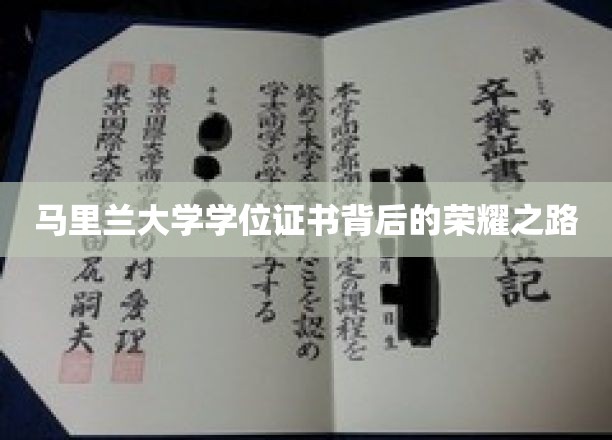 第 号
卒業証書 位記
本学商学部商 所定の課程を
月 日生
修めて本学を ことを認め
学士(商学)の学 与する
平成
东京国際大学商学 村愛理
東京国際大学 田尻嗣夫
马里兰大学学位证书背后的荣耀之路